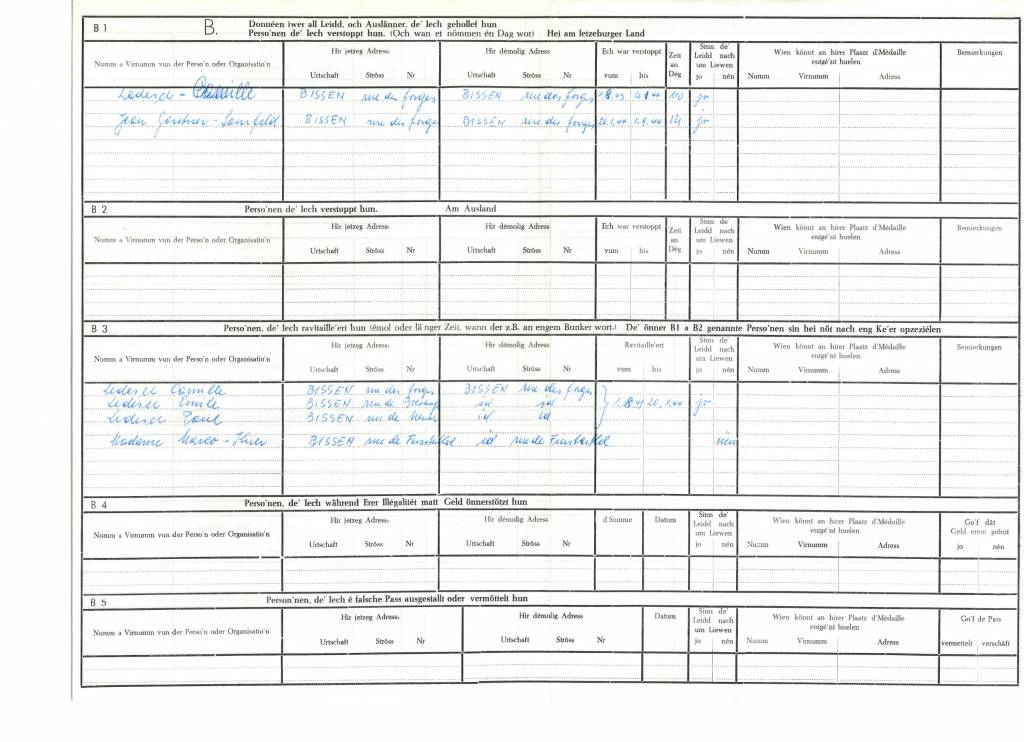 B 1 B. Donnéen iwer all Leidd, och Auslänner, de' Iech gehollef hun
Perso'nen de' Iech verstoppt hun. (Och wan et nömmen én Dag wor) Hei am letzeburger Land
Numm a Virnumm vun der Perso'n oder Organisatio'n Hir jetzeg Adress: Hir démolig Adress: Ech war verstoppt Zeit an Dég Sinn de' Leidd nach um Liewen Wien könnt an hirer Plaatz d'Médaille entgé'nt huelen Bemierkungen
Urtschaft Ströss Nr Urtschaft Ströss Nr vum bis jo nén Numm Virnumm Adress
Ledesch - Camille BISSEN rue des forges BISSEN rue des forges 110 jo
Jean BISSEN rue des forges BISSEN rue des forges 20.1.44 1.9.44 jo
B 2 Perso'nen de' Iech verstoppt hun. Am Ausland
Numm a Virnumm vun der Perso'n oder Organisatio'n Hir jetzeg Adress: Hir démolig Adress: Ech war verstoppt Zeit an Dég Sinn de' Leidd nach um Liewen Wien könnt an hirer Plaatz d'Médaille entgé'nt huelen Bemierkungen
Urtschaft Ströss Nr Urtschaft Ströss Nr vum bis jo nén Numm Virnumm Adress
B 3 Perso'nen, de' Iech ravitaille'ert hun (émol oder lä nger Zeit, wann der z.B. an engem Bunker wort.) De' önner B1 a B2 genannte Perso'nen sin hei nöt nach eng Ke'er opzeziélen
Numm a Virnumm vun der Perso'n oder Organisatio'n Hir jetzeg Adress: Hir démolig Adress: Ravitaille'ert Sinn de' Leidd nach um Liewen Wien könnt an hirer Plaatz d'Médaille entgé'nt huelen Bemierkungen
Urtschaft Ströss Nr Urtschaft Ströss Nr vum bis jo nén Numm Virnumm Adress
Camille BISSEN rue des forges BISSEN rue des forges
Emile BISSEN rue de id id 20.1.44 jo
BISSEN rue de id id
Madame BISSEN rue de id rue de nén
B 4 Perso'nen, de' Iech während Erer Illégalitét matt Geld önnerstötzt hun
Numm a Virnumm vun der Perso'n oder Organisatio'n Hir jetzeg Adress: Hir démolig Adress d'Somme Datum Sinn de' Leidd nach um Liewen Wien könnt an hirer Plaatz d'Médaille entgé'nt huelen Go'f dât Geld erem gehot
Urtschaft Ströss Nr Urtschaft Ströss Nr jo nén Numm Virnumm Adress jo nén
B 5 Person'nen, de' Iech é falsche Pass ausgestallt oder vermöttelt hun
Numm a Virnumm vun der Perso'n oder Organisatio'n Hir jetzeg Adress: Hir démolig Adress: Datum Sinn de' Leidd nach um Liewen Wien könnt an hirer Plaatz d'Médaille entgé'nt huelen Go'f de Pass
Urtschaft Ströss Nr Urtschaft Ströss Nr jo nén Numm Virnumm Adress vermettelt verschâft